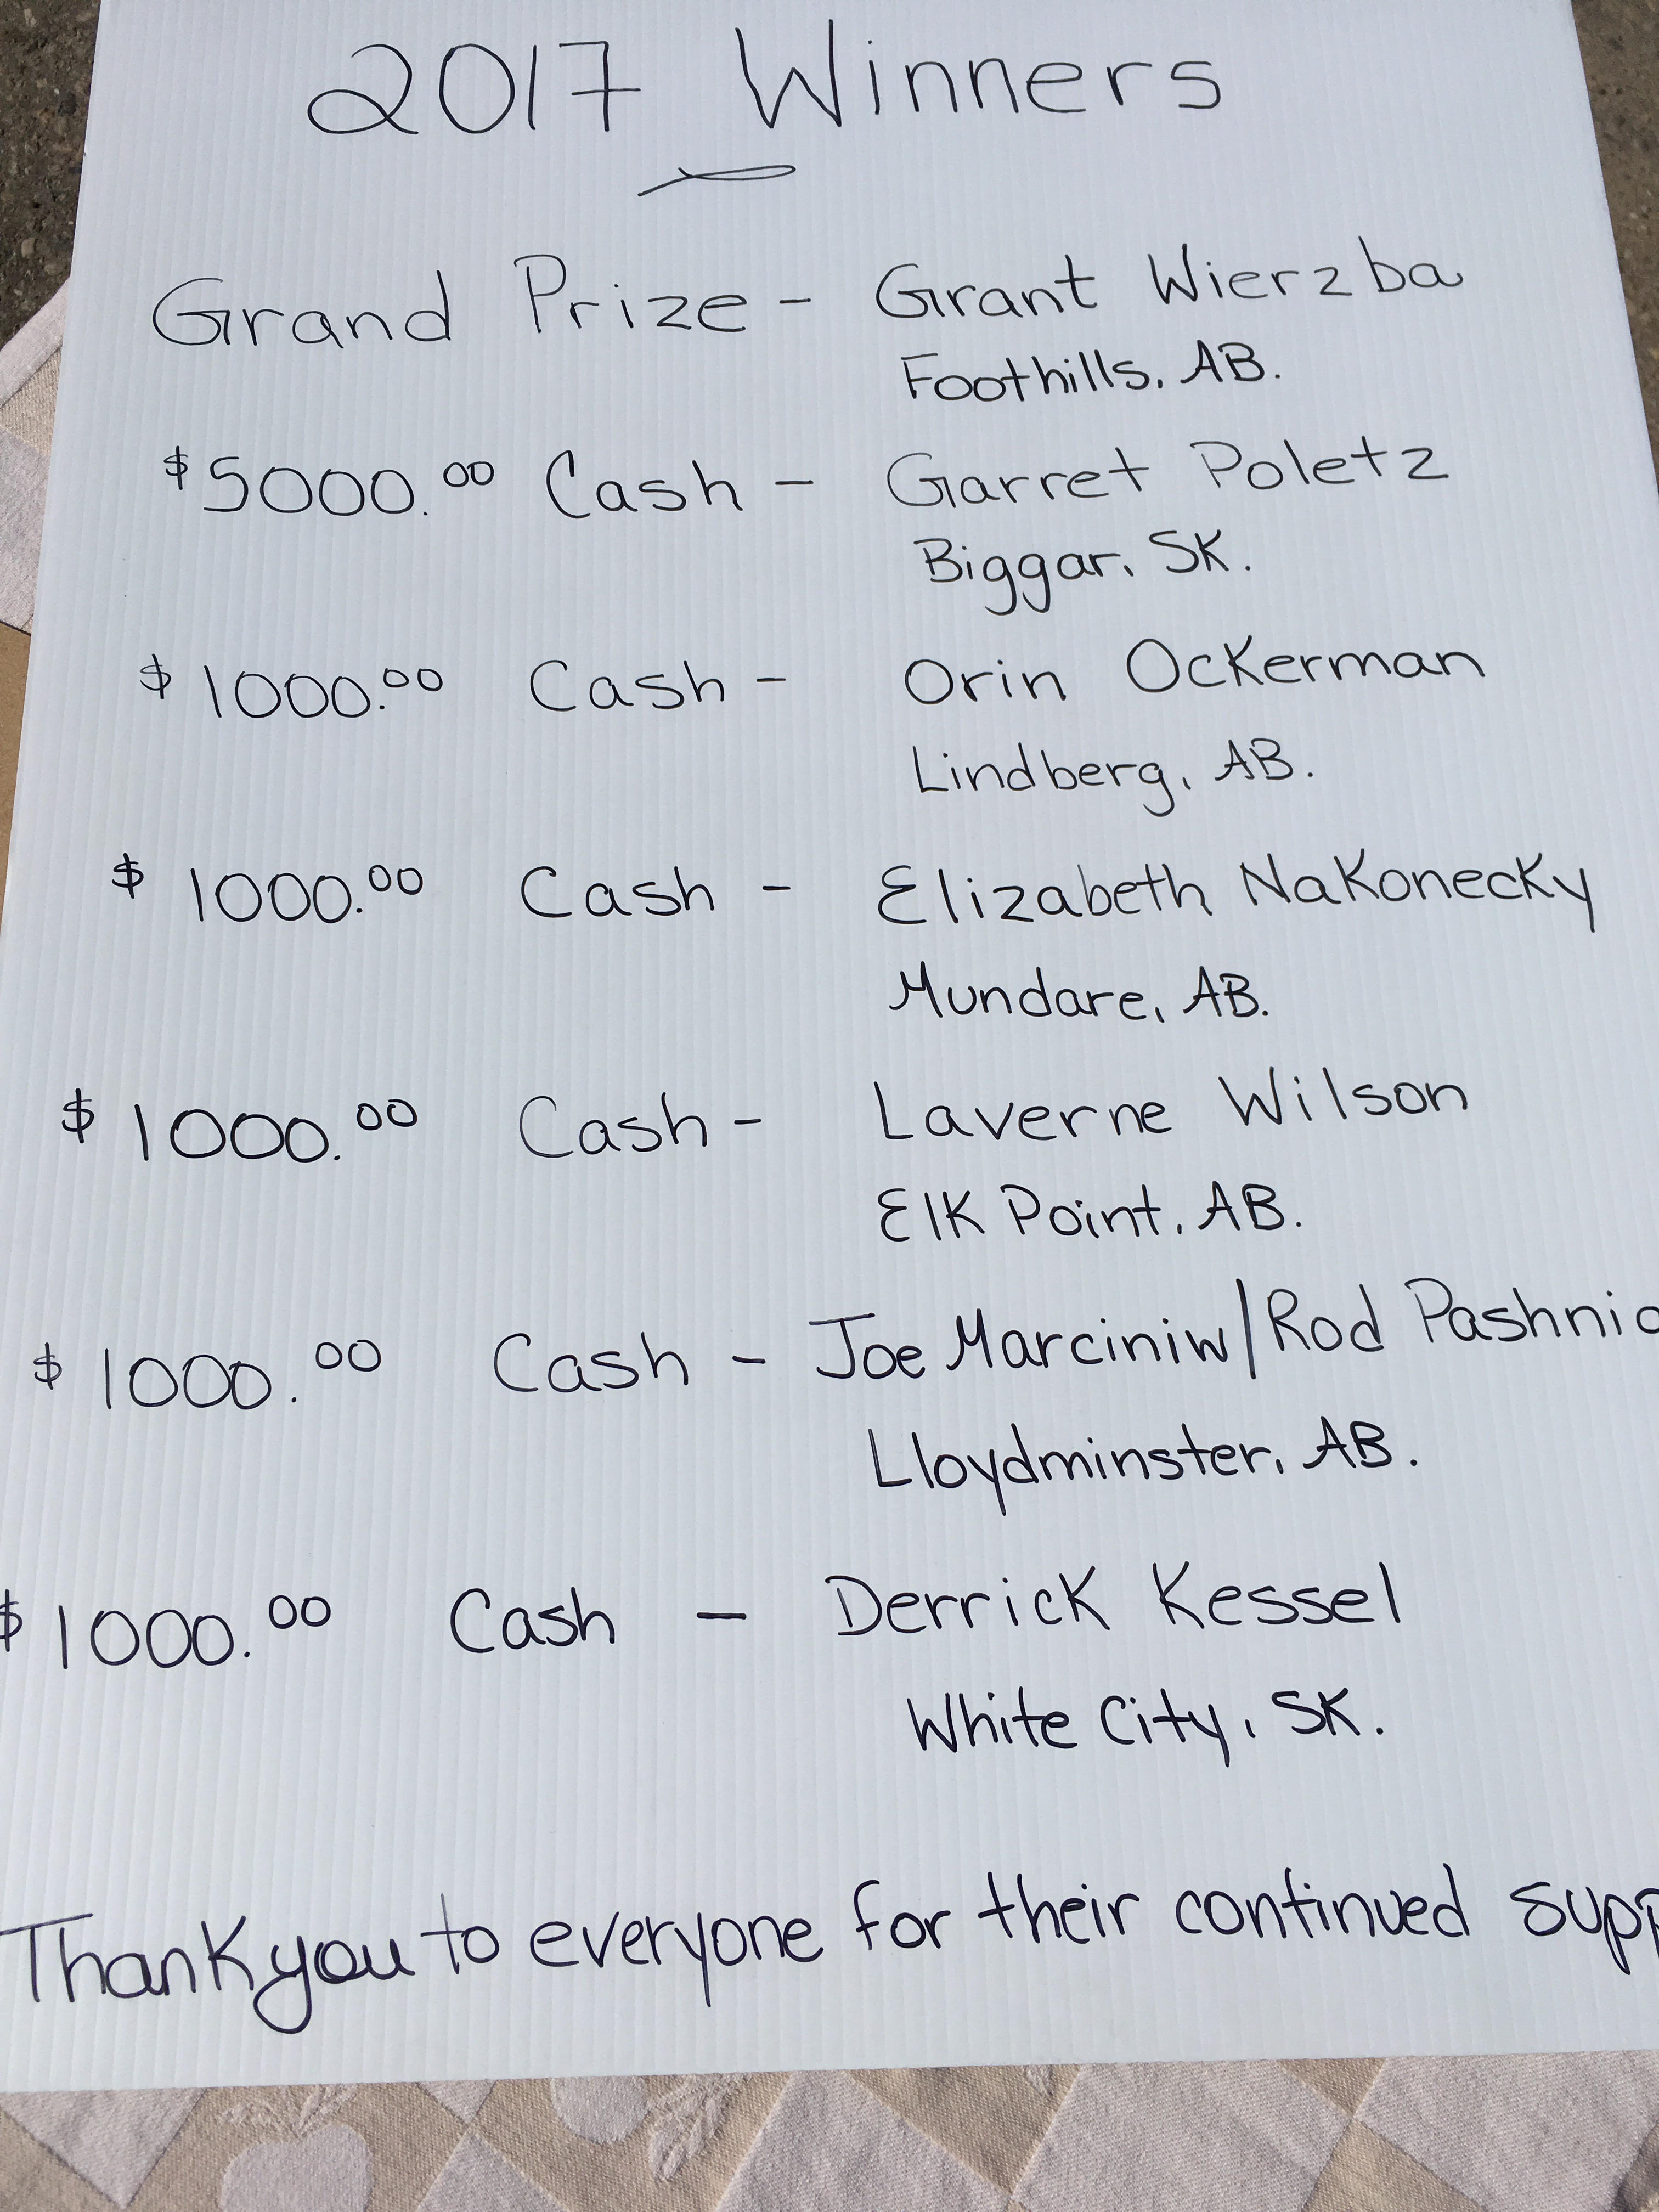 2017 Winners
Grand Prize - Grant Wierzba
Foothills, AB.
$5000.00 Cash - Garret Poletz
Biggar, SK.
$1000.00 Cash - Orin Ockerman
Lindberg, AB.
$1000.00 Cash - Elizabeth Nakonecky
Mundare, AB.
$1000.00 Cash - Laverne Wilson
Elk Point, AB.
$1000.00 Cash - Joe Marciniw/Rod
Lloydminster, AB.
$1000.00 Cash - Derrick Kessel
White City, SK.
Thank you to everyone for their continued